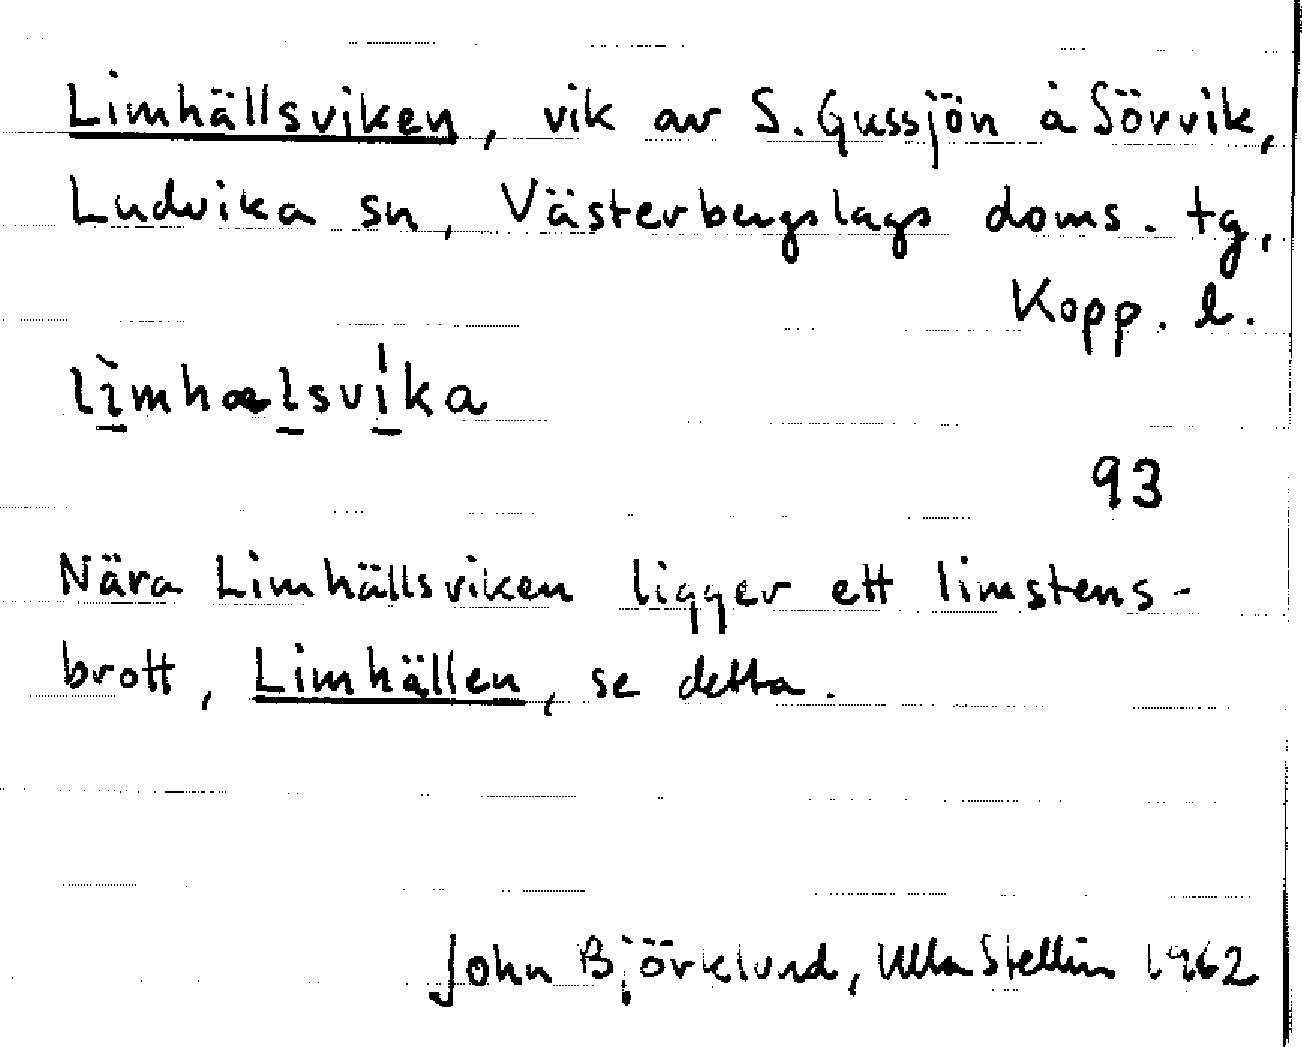 Limhällsviken, vik av S. Gussjön å Sörvik,
Ludvika sn, Västerbergslags doms. tg,
Kopp. l.
lìmhælsvíka
93
Nära Limhällsviken ligger ett limstens-
brott, Limhällen, se detta.
John Björklund, Ulla Stellin 1962